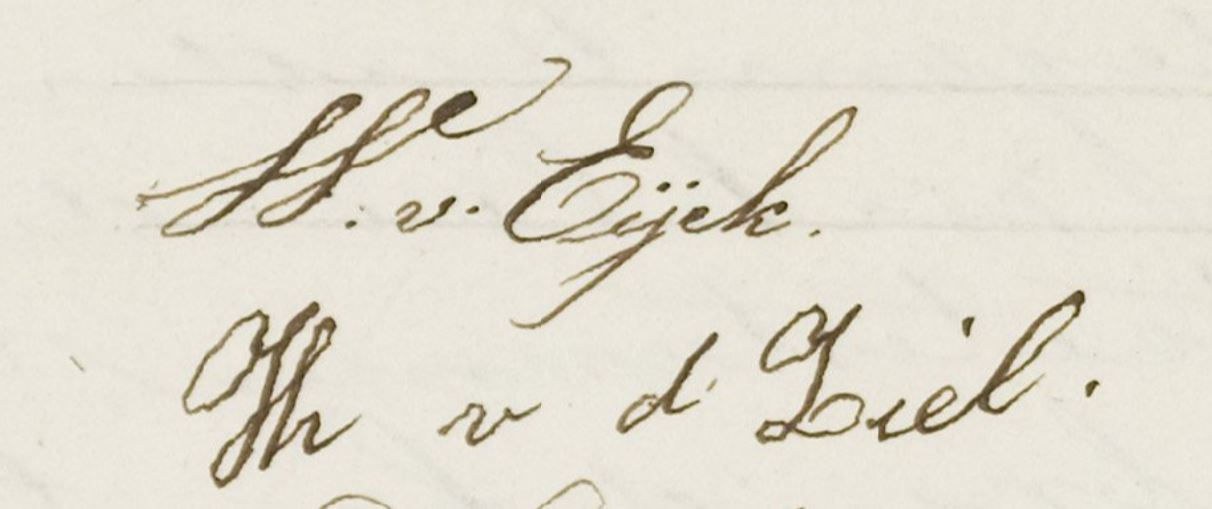 H. v. Eijck.
Th v d Ziel.